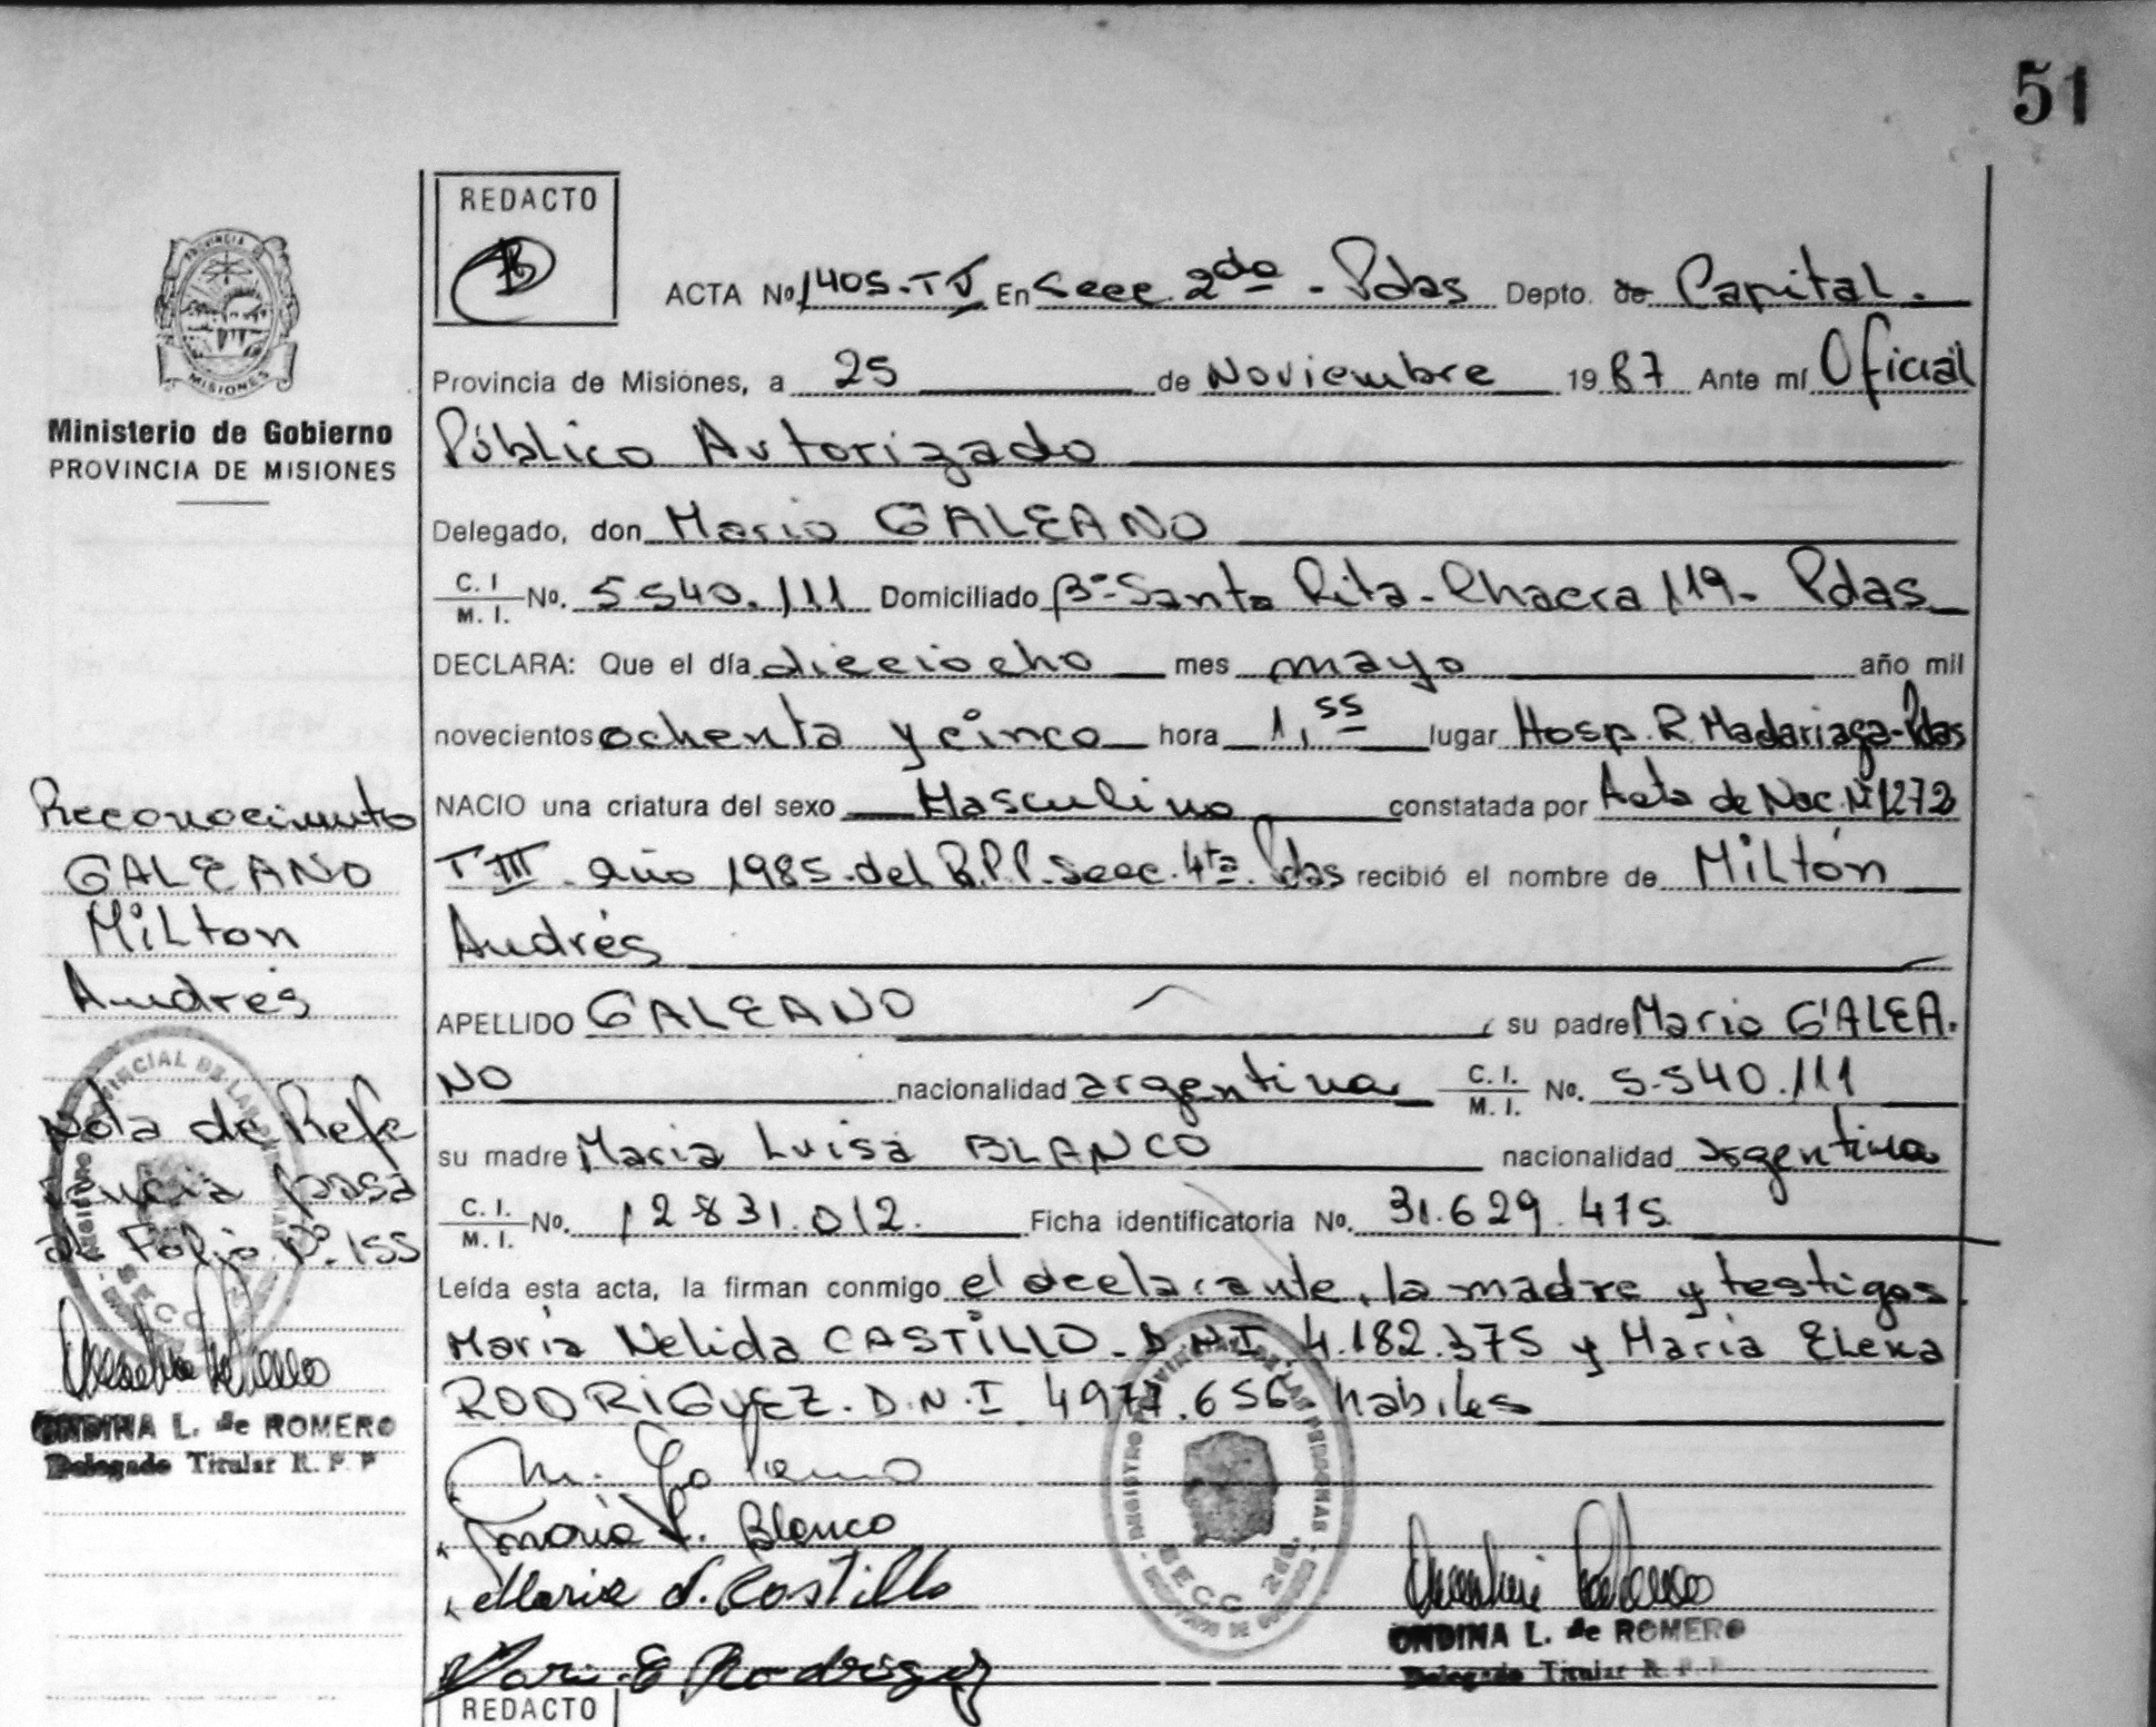 51
REDACTO
ACTA No 1405-TV En Secc. 2da - Pdas Depto. de Capital.
Provincia de Misiones, a 25 de Noviembre 1987 Ante mí Oficial
Público Autorizado
Delegado, don Mario GALEANO
C. I. / M. I. No. 5.540.111 Domiciliado Bº Santa Rita - Chacra 119 - Pdas
DECLARA: Que el día dieciocho mes mayo año mil
novecientos ochenta y cinco hora 1,55 lugar Hosp. R. Madariaga-Pdas
NACIO una criatura del sexo Masculino constatada por Acta de Nac. Nº 1272
T III Año 1985. del R.P.P. Secc. 4ta. Pdas recibió el nombre de Miltón
Andrés
APELLIDO GALEANO su padre Mario GALEA-
NO nacionalidad argentina C. I. / M. I. No. 5.540.111
su madre Maria Luisa BLANCO nacionalidad argentina
C. I. / M. I. No. 12.831.012. Ficha identificatoria No. 31.629.475
Leída esta acta, la firman conmigo el declarante, la madre y testigos
María Nelida CASTILLO - D.N.I 4.182.375 y Maria Elena
RODRIGUEZ. D.N.I 4977.656 habiles
M. Galeano
Maria L. Blanco
Maria N. Castillo
Mari E Rodriguez
REGISTRO PROVINCIAL DE LAS PERSONAS
SECC 2da.
ONDINA L. de ROMERO
Delegado Titular R. P. P
REDACTO
PROVINCIA DE
MISIONES
Ministerio de Gobierno
PROVINCIA DE MISIONES
Reconocimiento
GALEANO
Milton
Andrés
Nota de Refe
rencia pasa
al Folio Nº 155
REGISTRO PROVINCIAL DE LAS PERSONAS
SECC
ONDINA L. de ROMERO
Delegado Titular R. P. P